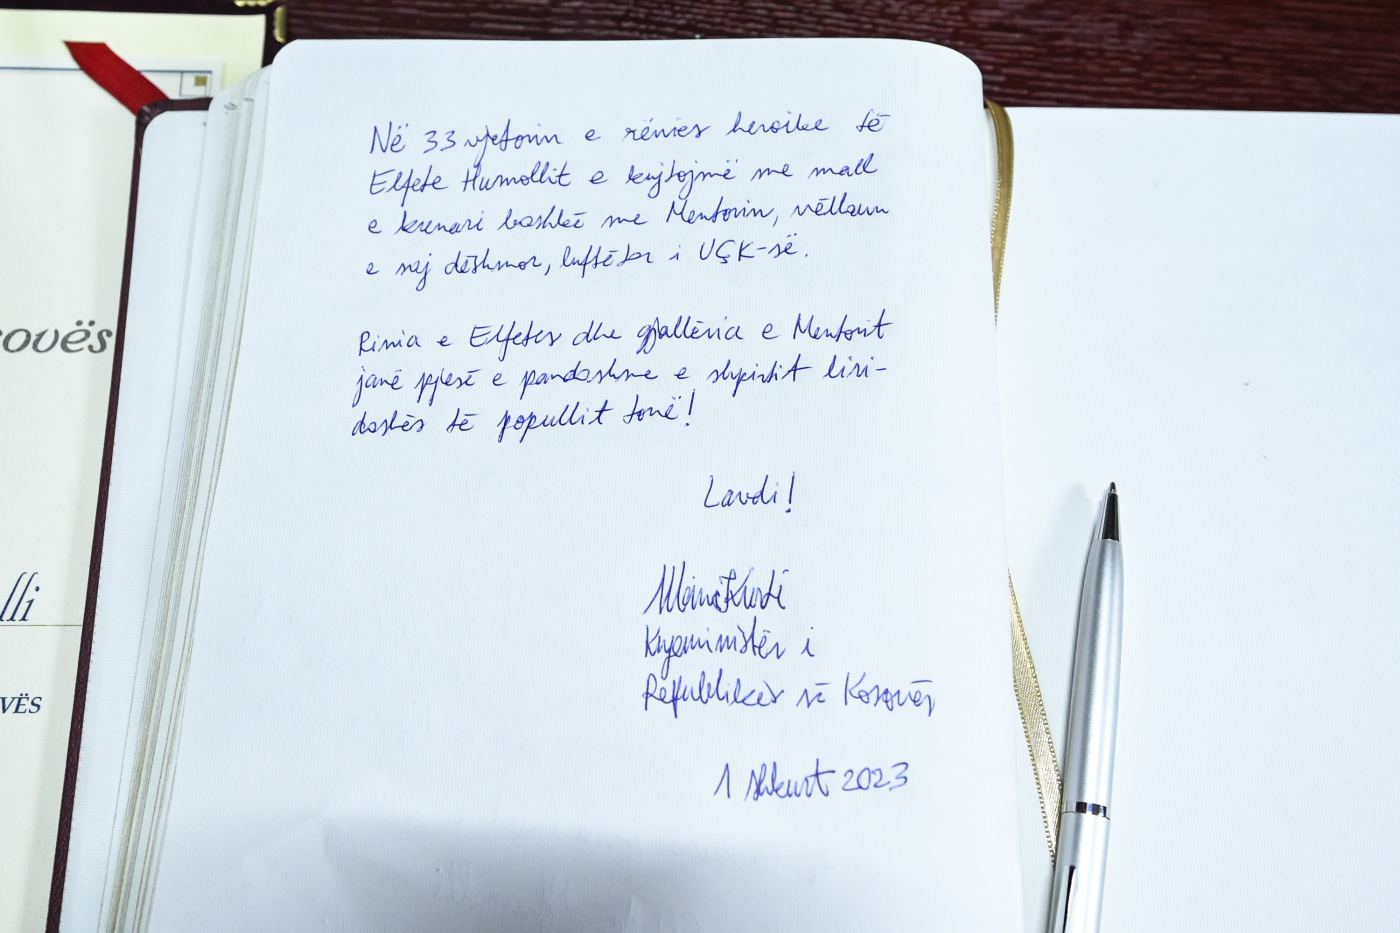 Në 33 vjetorin e rënies heroike të
Elfete Humollit e kujtojmë me mall
e krenari bashkë me Mentorin, vëllaun
e saj dëshmor, luftëtar i UÇK-së.
Rinia e Elfetes dhe gjallëria e Mentorit
janë pjesë e pandashme e shpirtit liri-
dashës të popullit tonë!
Lavdi!
Albin Kurti
Kryeministër i
Republikës së Kosovës
1 shkurt 2023
ovës
lli
VËS